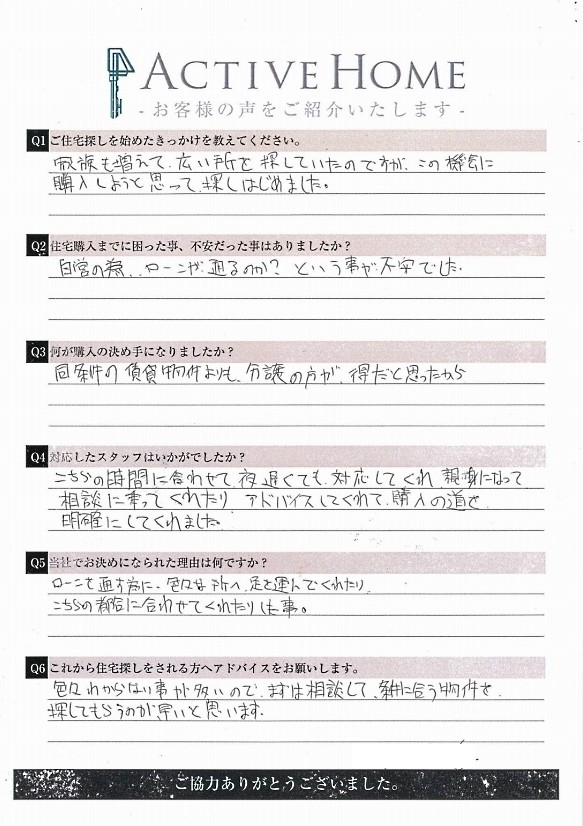 ACTIVE HOME
- お客様の声をご紹介いたします -
Q1 ご住宅探しを始めたきっかけを教えてください。
家族も増えて、広い所を探していたのですが、この機会に
購入しようと思って、探しはじめました。
Q2 住宅購入までに困った事、不安だった事はありましたか？
自営の為、ローンが通るのか？という事が不安でした。
Q3 何が購入の決め手になりましたか？
同条件の賃貸物件よりも、分譲の方が、得だと思ったから
Q4 対応したスタッフはいかがでしたか？
こちらの時間に合わせて、夜遅くても、対応してくれ 親身になって
相談に乗ってくれたり アドバイスしてくれて、購入の道を
明確にしてくれました。
Q5 当社でお決めになられた理由は何ですか？
ローンを通す為に、色々な所へ、足を運んでくれたり、
こちらの都合に合わせてくれたりした事。
Q6 これから住宅探しをされる方へアドバイスをお願いします。
色々わからない事が多いので、まずは相談して、条件に合う物件を、
探してもらうのが早いと思います。
ご協力ありがとうございました。